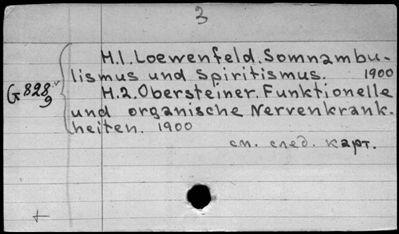 3
H.1. Loewenfeld. Somnambu-
lismus und Spiritismus. 1900
G 828
9
H.2. Obersteiner. Funktionelle
und organische Nervenkrank.
heiten. 1900
см. след. карт.